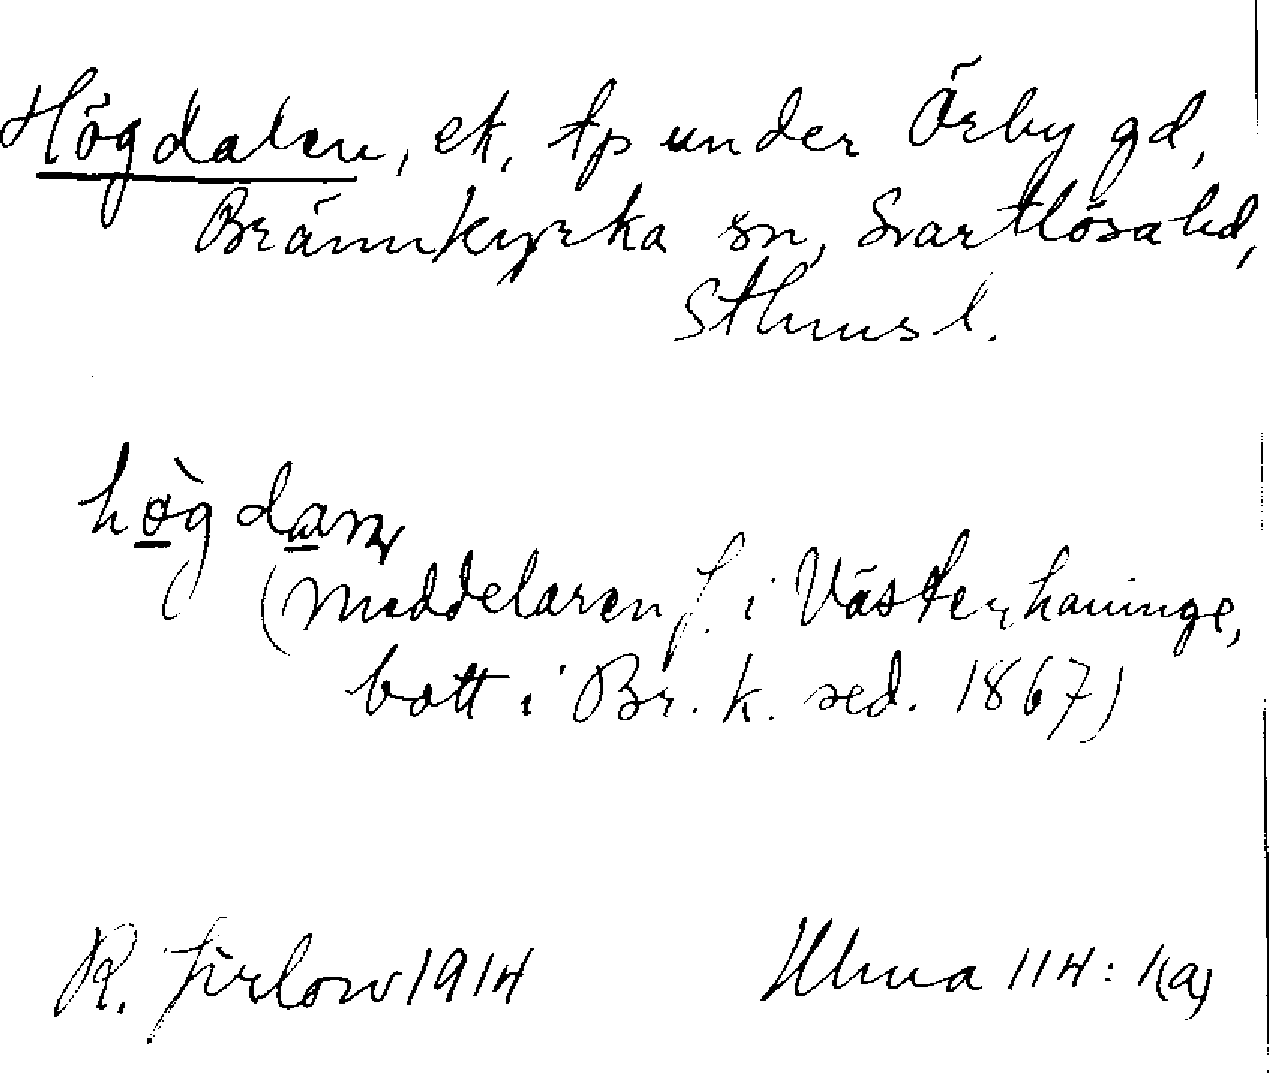 Högdalen, ek, tp under Örby gd,
Brännkyrka sn, Svartlösa hd,
Sthms l.
(Meddelaren f. i Västerhaninge,
bott i Br.k. sed. 1867)
R. Jirlow 1914 Ulma 114: 1(a)